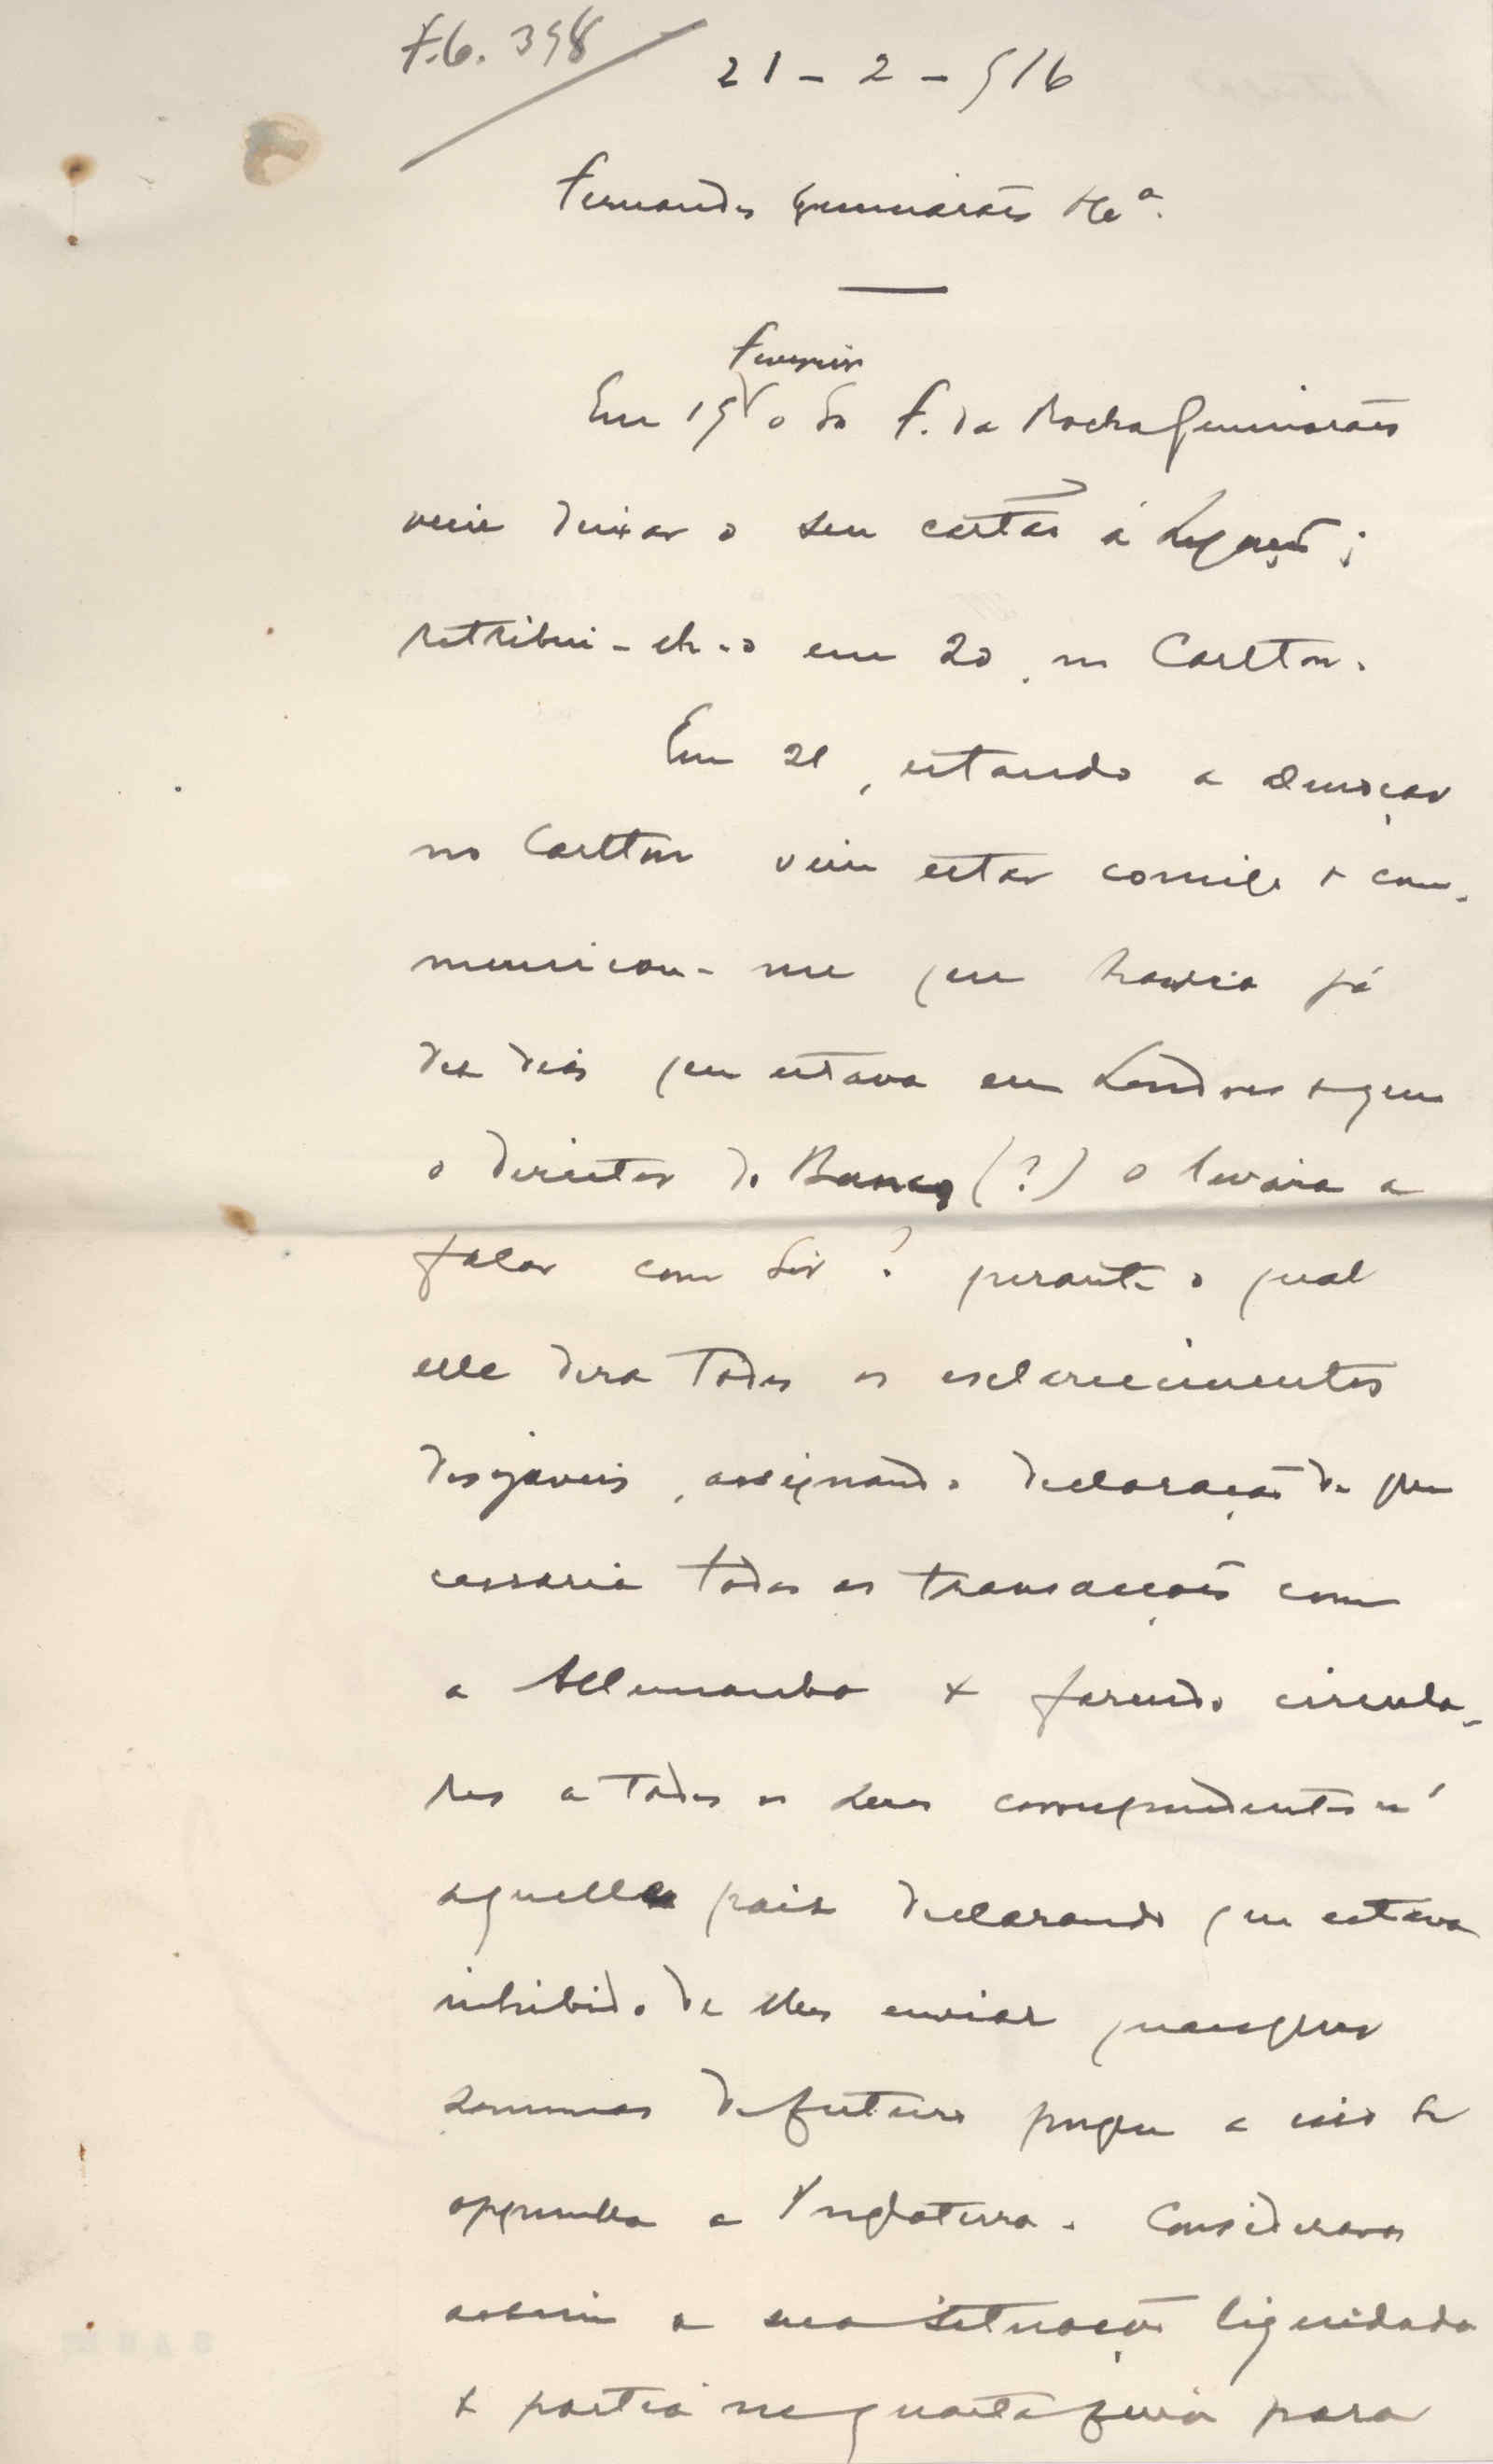 F.G. 398
21 - 2 - 916
Fernandes Guimarães & Cª.
Fevereiro
Em 19 o Sr F. da Rocha Guimarães
veio deixar o seu cartão á Legação;
retribui-lh-o em 20, no Carlton.
Em 21, estando a almoçar
no Carlton veiu estar comigo e com-
municou-me que havia já
dez dias que estava em Londres e que
o director do Banco (?) o levára a
falar com Sir ? perante o qual
elle dera todos os esclarecimentos
desejaveis, assignando declaração de que
cessaria todas as transacções com
a Allemanha e fazendo circula-
res a todos os seus correspondentes n'
aquelle paiz declarando que estava
inhibido de lhes enviar quaesquer
sommas de futuro porque a isso se
oppunha a Inglaterra. Considerava
assim a sua situação liquidada
e partia na quarta feira para